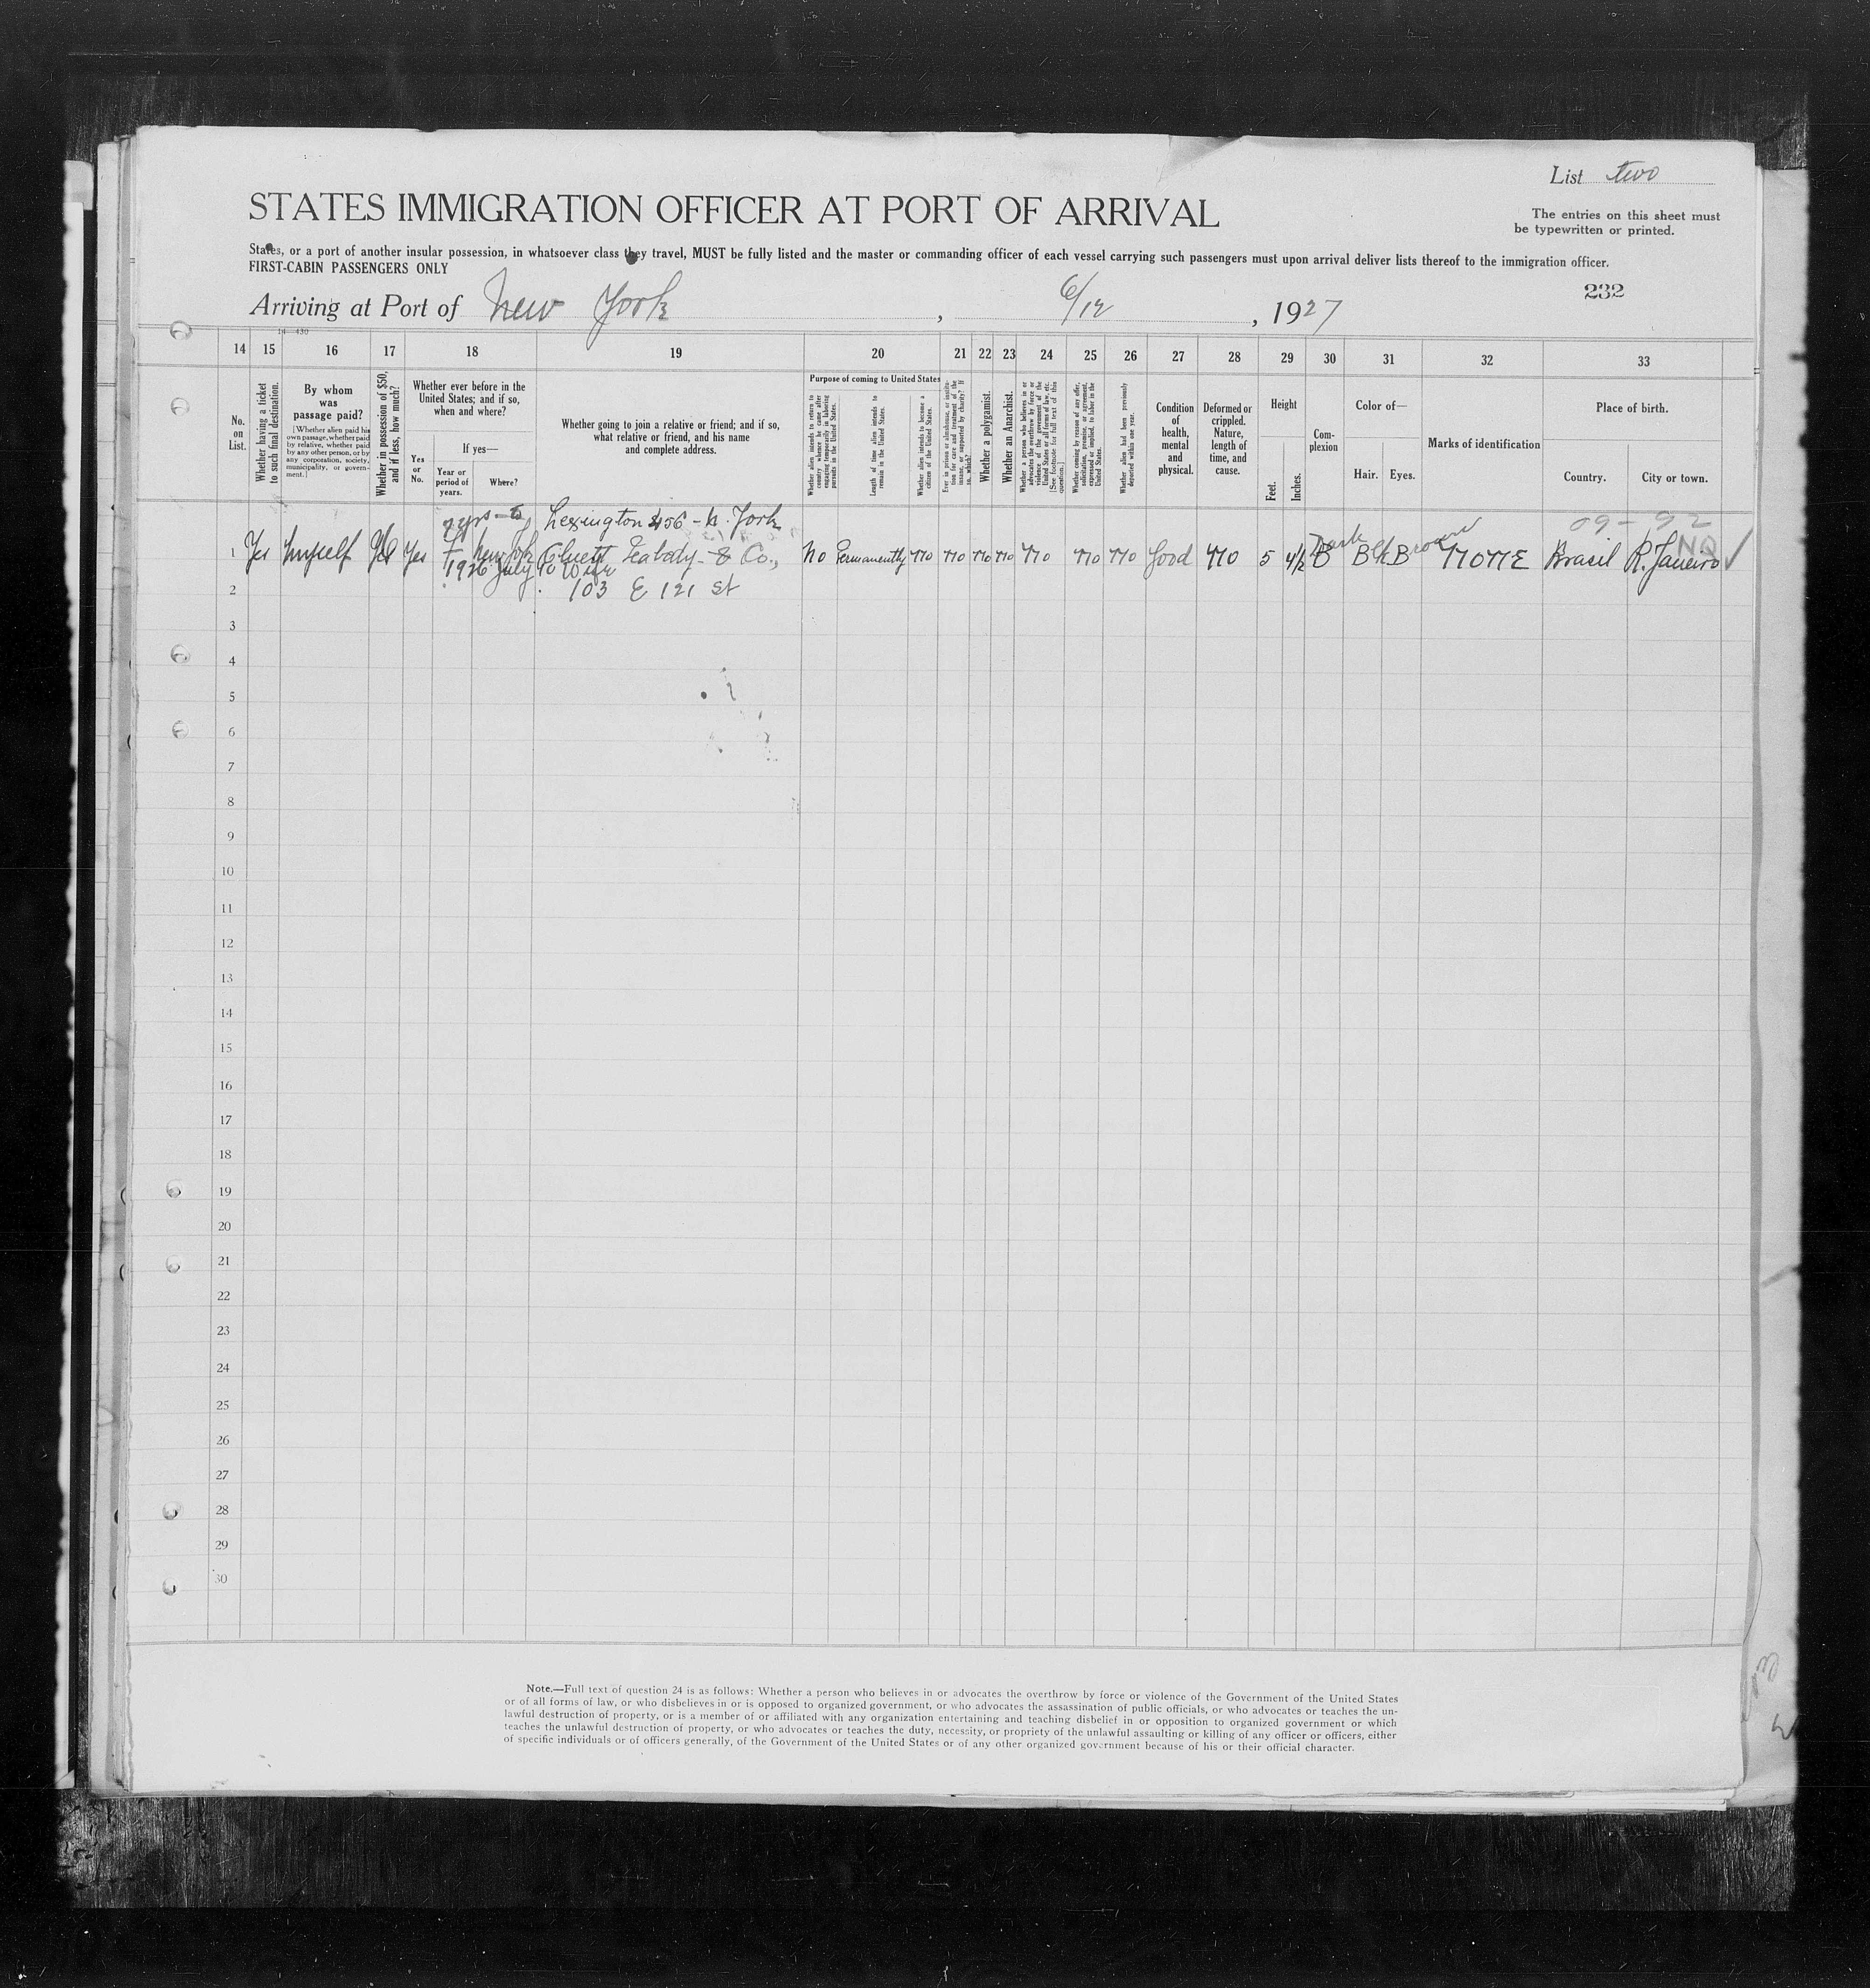 List two
STATES IMMIGRATION OFFICER AT PORT OF ARRIVAL
The entries on this sheet must
be typewritten or printed.
States, or a port of another insular possession, in whatsoever class they travel, MUST be fully listed and the master or commanding officer of each vessel carrying such passengers must upon arrival deliver lists thereof to the immigration officer.
FIRST-CABIN PASSENGERS ONLY
232
Arriving at Port of New York , 6/12 , 1927
14 15 16 17 18 19 20 21 22 23 24 25 26 27 28 29 30 31 32 33
No.
on
List.
Whether having a ticket
to such final destination.
By whom
was
passage paid?
[Whether alien paid his
own passage, whether paid
by relative, whether paid
by any other person, or by
any corporation, society,
municipality, or govern-
ment.]
Whether in possession of $50,
and if less, how much?
Whether ever before in the
United States; and if so,
when and where?
Yes
or
No.
If yes—
Year or
period of
years.
Where?
Whether going to join a relative or friend; and if so,
what relative or friend, and his name
and complete address.
Purpose of coming to United States
Whether alien intends to return to
country whence he came after
engaging temporarily in laboring
pursuits in the United States.
Length of time alien intends to
remain in the United States.
Whether alien intends to become a
citizen of the United States.
Ever in prison or almshouse, or institu-
tion for care and treatment of the
insane, or supported by charity? If
so, which?
Whether a polygamist.
Whether an Anarchist.
Whether a person who believes in or
advocates the overthrow by force or
violence of the government of the
United States or all forms of law, etc.
[See footnote for full text of this
question.]
Whether coming by reason of any offer,
solicitation, promise, or agreement,
expressed or implied, to labor in the
United States.
Whether alien had been previously
deported within one year.
Condition
of
health,
mental
and
physical.
Deformed or
crippled.
Nature,
length of
time, and
cause.
Height
Feet. Inches.
Com-
plexion
Color of—
Hair. Eyes.
Marks of identification
Place of birth.
Country. City or town.
yrs Lexington 456 - N. York 09 - 92
1 Yes Myself Yes Yes New York Cluett Peabody & Co., No Permanently No No No No No No No Good No 5 4½ Dark Blk Brown NONE Brasil R. Janeiro NQ
1926 July
2 103 E 121 st
3
4
5
6
7
8
9
10
11
12
13
14
15
16
17
18
19
20
21
22
23
24
25
26
27
28
29
30
Note.—Full text of question 24 is as follows: Whether a person who believes in or advocates the overthrow by force or violence of the Government of the United States
or of all forms of law, or who disbelieves in or is opposed to organized government, or who advocates the assassination of public officials, or who advocates or teaches the un-
lawful destruction of property, or is a member of or affiliated with any organization entertaining and teaching disbelief in or opposition to organized government or which
teaches the unlawful destruction of property, or who advocates or teaches the duty, necessity, or propriety of the unlawful assaulting or killing of any officer or officers, either
of specific individuals or of officers generally, of the Government of the United States or of any other organized government because of his or their official character.